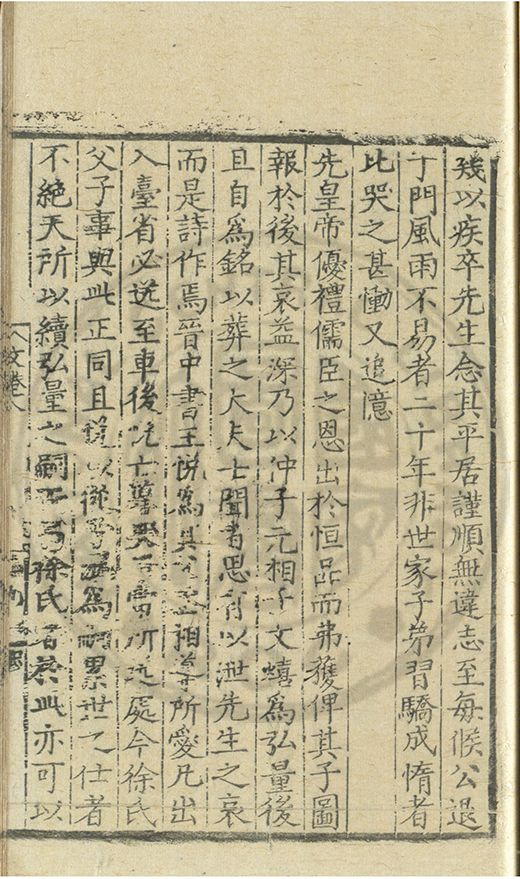 殘以疾卒先生念其平居謹順無違志至每候公退
于門風雨不易者二十年非世家子弟習驕成惰者
比哭之甚慟又追憶
先皇帝優禮儒臣之恩出於恒品而弗獲俾其子圖
報於後其哀益深乃以仲子元相子文嬉為弘量後
且自為銘以葬之大夫士聞者思有以泄先生之哀
而是詩作焉晉中書王悅為其父丞相導所愛凡出
入臺省必送至車後悅亡導哭至曹所送處今徐氏
父子事與此正同且悅以從子為嗣累世之仕者
不絕天所以續弘量之嗣而徐氏者於此亦可以
文卷八